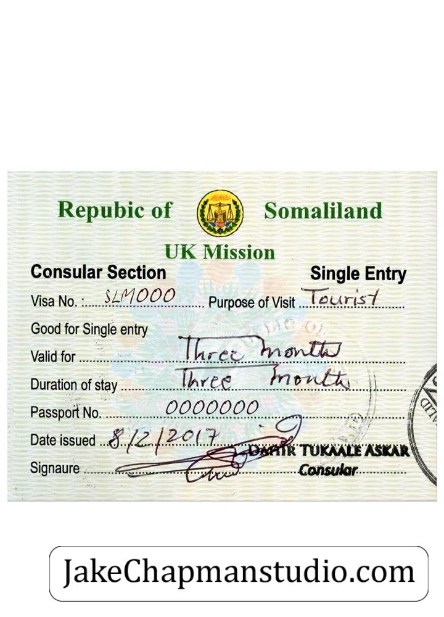 Repubic of Somaliland
UK Mission
Consular Section Single Entry
Visa No. : SLM000 Purpose of Visit Tourist
Good for Single entry
Valid for Three month
Duration of stay Three month
Passport No. 0000000
Date issued 8/2/2017
DAHIR TUKAALE ASKAR
Signaure Consular
JakeChapmanstudio.com